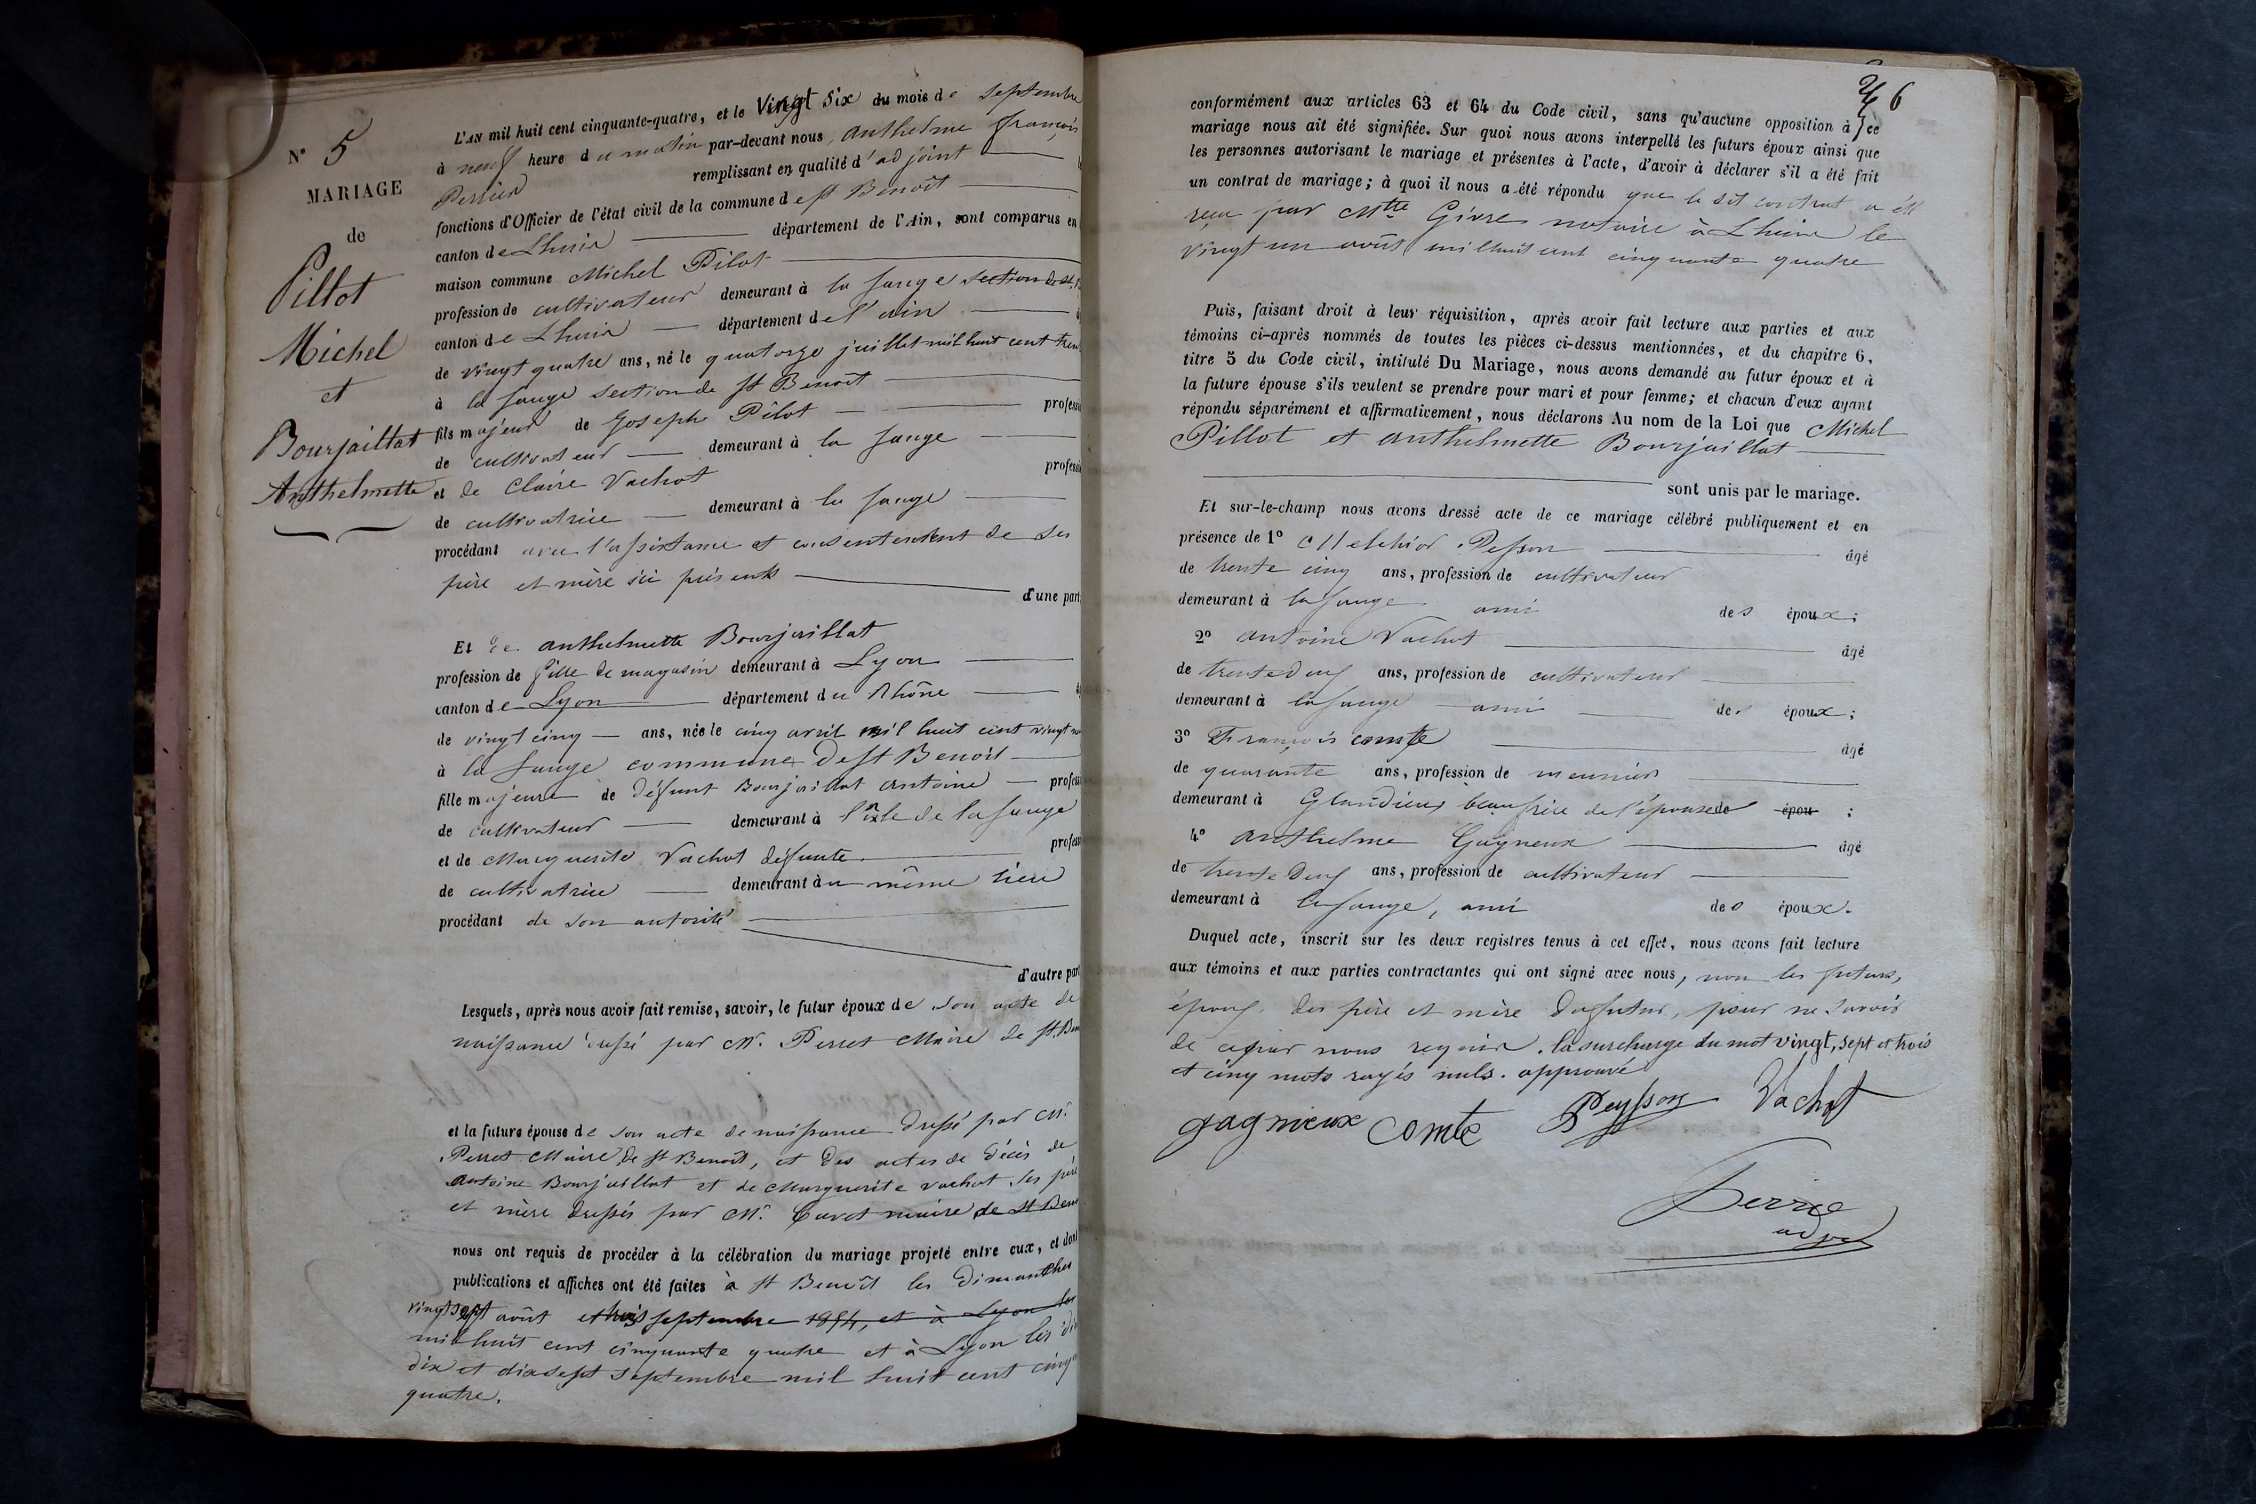 N° 5
MARIAGE
de
Pillot
Michel
et
Bourjaillat
Anthelmette
L'AN mil huit cent cinquante-quatre, et le Vingt Six du mois de septembre
à neuf heure du matin par-devant nous, anthelme françois
Perrier remplissant en qualité d'adjoint
fonctions d'Officier de l'état civil de la commune de St Benoît
canton de Lhuis département de l'Ain, sont comparus en
maison commune Michel Pilot
profession de cultivateur demeurant à la sauge section de St
canton de Lhuis département de l'ain
de vingt quatre ans, né le quatorze juillet mil huit cent tren
à la sauge section de St Benoît
fils majeur de Joseph Pilot professi
de cultivateur demeurant à la sauge
et de Claire Vachot professi
de cultivatrice demeurant à la sauge
procédant avec l'assistance et consentement de ses
père et mère ici présents
d'une part
Et de anthelmette Bourjaillat
profession de fille de magasin demeurant à Lyon
canton de Lyon département du Rhône
de vingt cinq ans, née le cinq avril mil huit cent vingt
à la sauge commune de St Benoît
fille majeure de défunt Bourjaillat antoine profess
de cultivateur demeurant à l'île de la sauge
et de Marguerite Vachot défunte profess
de cultivatrice demeurant au même lieu
procédant de son autorité
d'autre part
Lesquels, après nous avoir fait remise, savoir, le futur époux de son acte de
naissance dressé par M. Perret Maire de St. Ben
et la future épouse de son acte de naissance dressé par M.
Perret Maire de St Benoît, et des actes de décès de
antoine Bourjaillat et de Marguerite vachot, ses père
et mère dressés par M. maire de St Beno
nous ont requis de procéder à la célébration du mariage projeté entre eux, et dont
publications et affiches ont été faites à St Benoît les dimanches
vingt sept août et trois septembre 1854, et à Lyon les
mil huit cent cinquante quatre et à Lyon les
dix et dix sept septembre mil huit cent cinq
quatre.
6
conformément aux articles 63 et 64 du Code civil, sans qu'aucune opposition à ce
mariage nous ait été signifiée. Sur quoi nous avons interpellé les futurs époux ainsi que
les personnes autorisant le mariage et présentes à l'acte, d'avoir à déclarer s'il a été fait
un contrat de mariage; à quoi il nous a été répondu que le dit contrat a été
reçu par Mtre Givre notaire à Lhuis le
vingt un août mil huit cent cinquante quatre
Puis, faisant droit à leur réquisition, après avoir fait lecture aux parties et aux
témoins ci-après nommés de toutes les pièces ci-dessus mentionnées, et du chapitre 6,
titre 5 du Code civil, intitulé Du Mariage, nous avons demandé au futur époux et à
la future épouse s'ils veulent se prendre pour mari et pour femme; et chacun d'eux ayant
répondu séparément et affirmativement, nous déclarons Au nom de la Loi que Michel
Pillot et anthelmette Bourjaillat
sont unis par le mariage.
Et sur-le-champ nous avons dressé acte de ce mariage célébré publiquement et en
présence de 1° Melchior Pesson âgé
de trente cinq ans, profession de cultivateur
demeurant à la sauge ami des époux;
2° antoine Vachot âgé
de trente deux ans, profession de cultivateur
demeurant à la sauge ami des époux;
3° François comte âgé
de quarante ans, profession de meunier
demeurant à Glandieu, beau frère de l'épouse de épou ;
4° anthelme Gagneux âgé
de trente deux ans, profession de cultivateur
demeurant à la sauge, ami des époux.
Duquel acte, inscrit sur les deux registres tenus à cet effet, nous avons fait lecture
aux témoins et aux parties contractantes qui ont signé avec nous, non les futurs,
époux, les père et mère du futur, pour ne savoir
de ce par nous requis. la surcharge du mot vingt, sept et trois
et cinq mots rayés nuls. approuvé
gagnieux comte Peysson Vachot
Perrie
adjoi